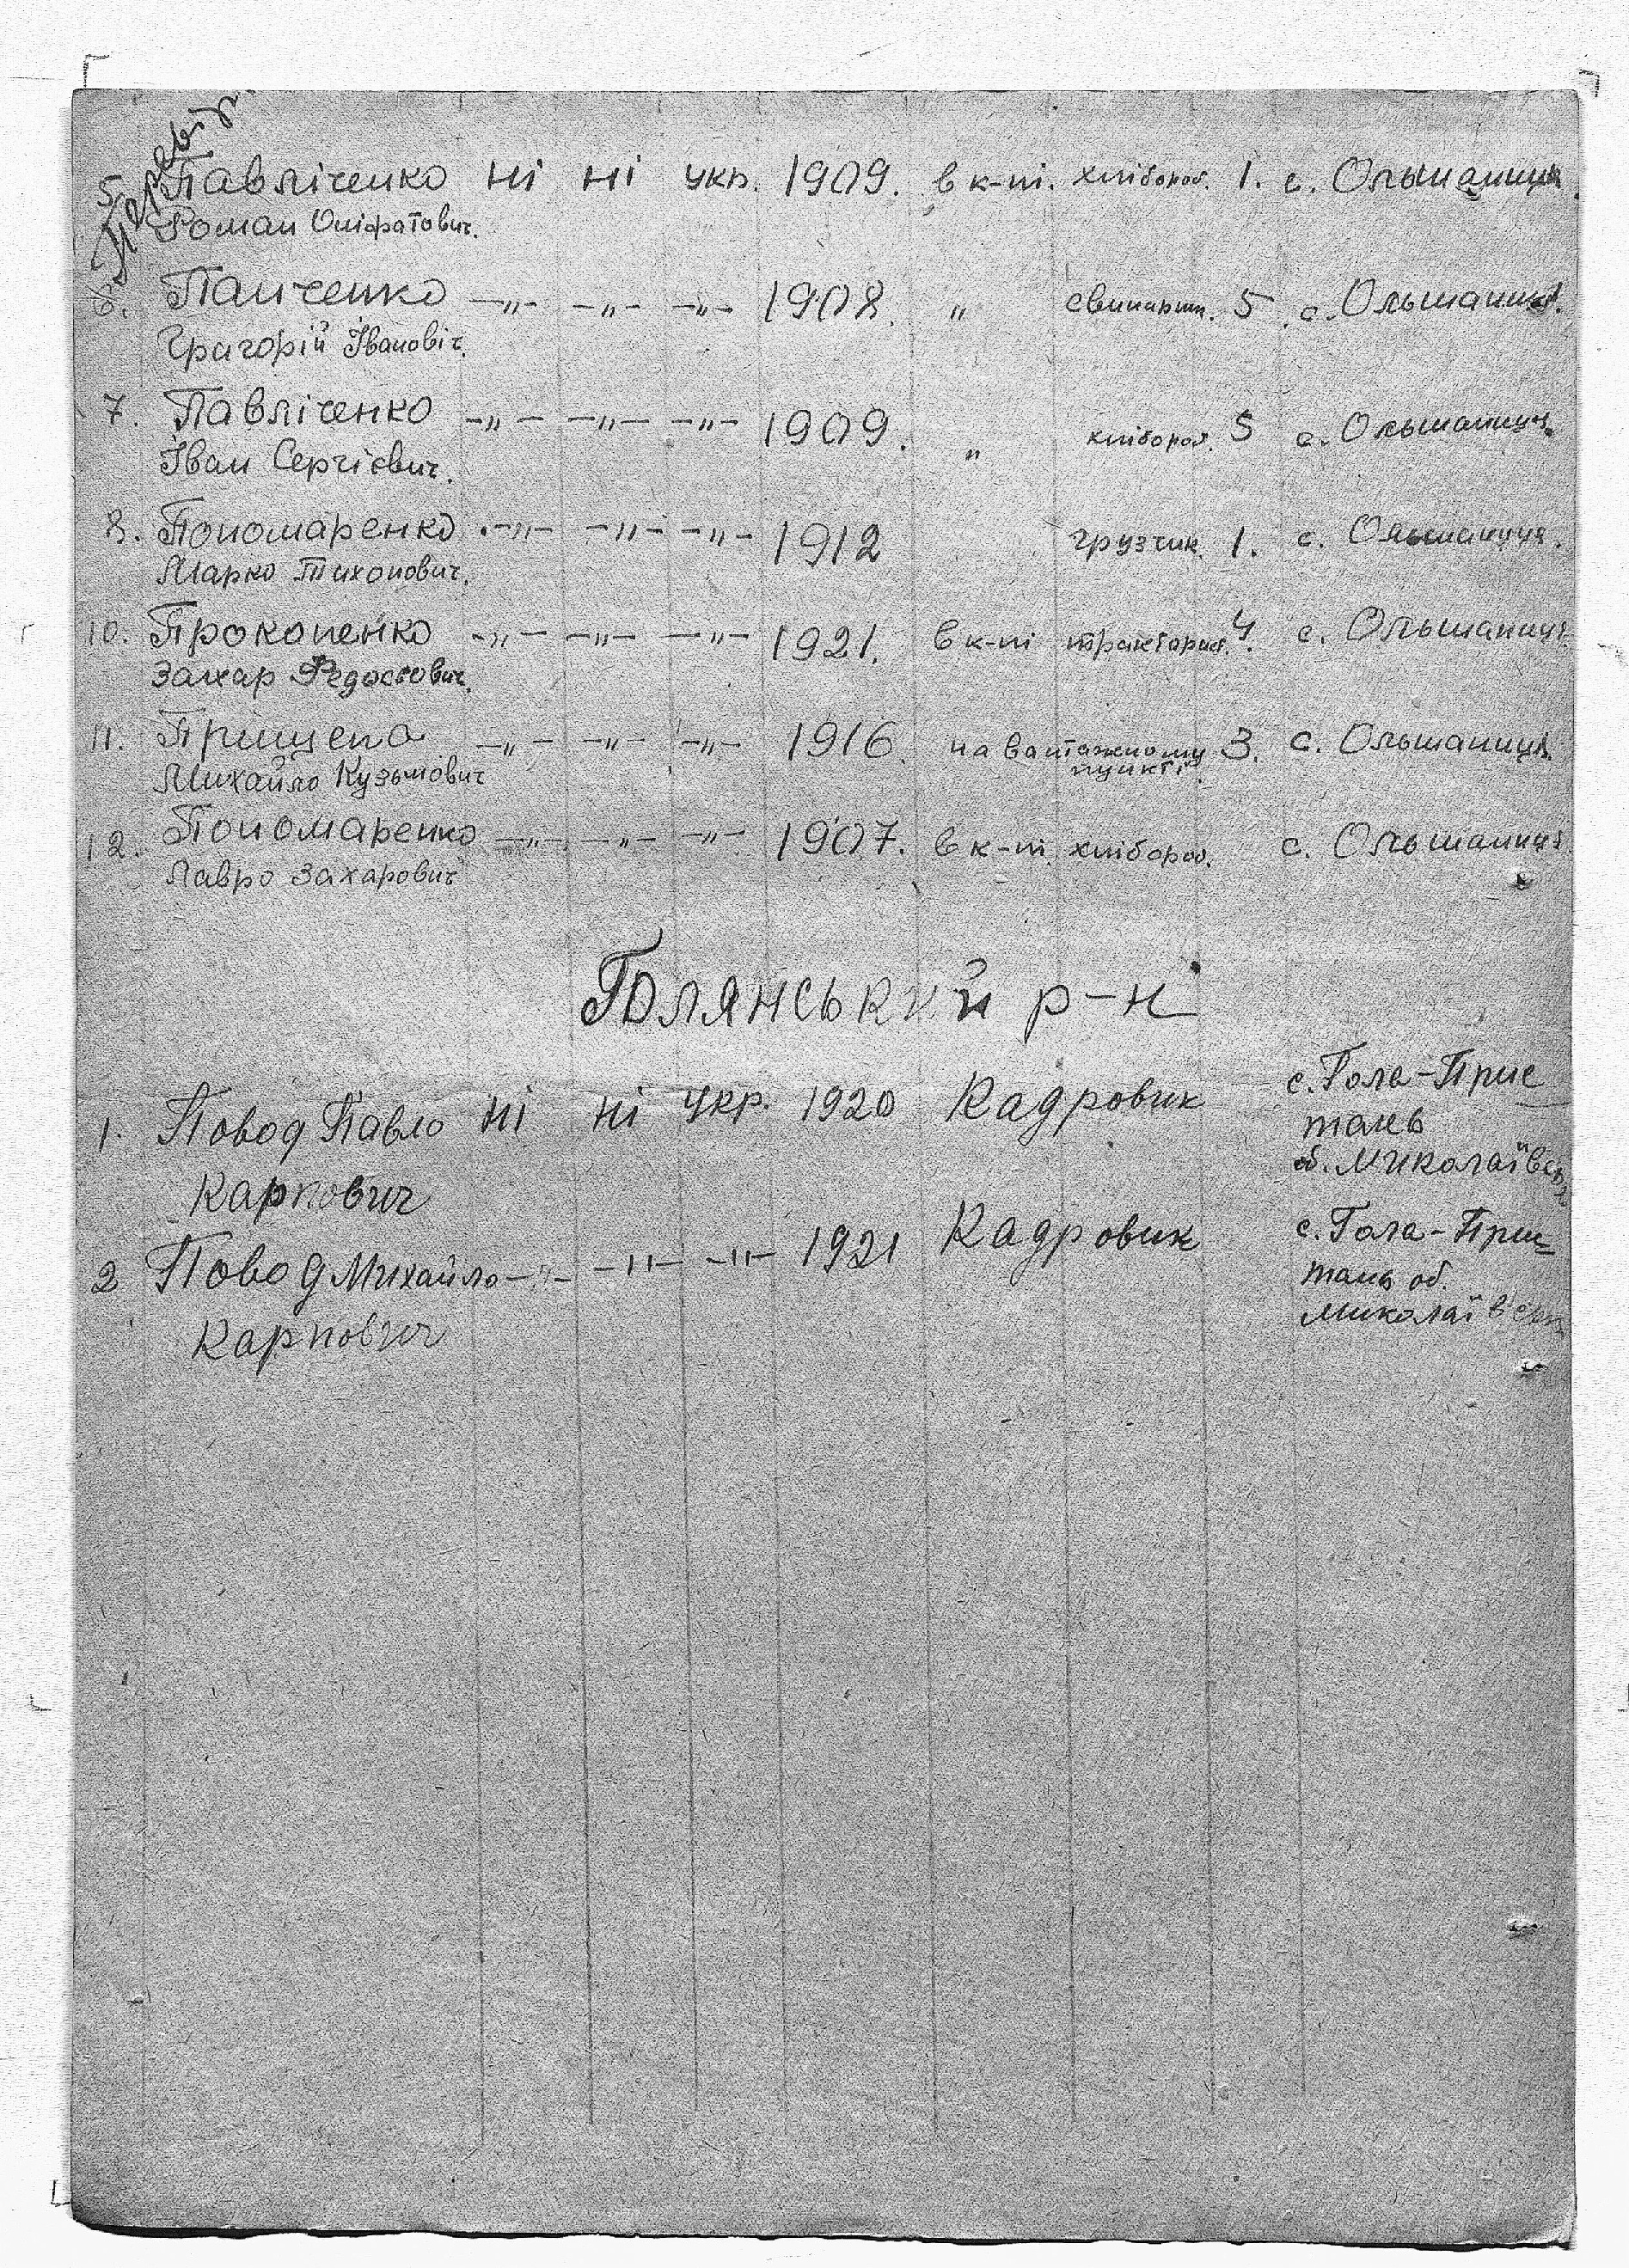 Перевір.
5. Павліченко ні ні укр. 1909. в к-пі. хлібороб. 1. с. Ольшаниця.
Роман Оніфратович.
6. Панченко —„— —„— —„— 1908. „ свинарни. 5. с. Ольшаниця.
Грагорій Івановіч.
7. Павліченко —„— —„— —„— 1909. „ хлібороб. 5 с. Ольшаниця.
Іван Сергієвич.
8. Пономаренко —„— —„— —„— 1912 грузчик. 1. с. Ольшаниця.
Марко Тихонович.
10. Прокопенко —„— —„— —„— 1921. в к-пі тракторист. 4. с. Ольшаниця
Захар Федосович.
11. Прищепа —„— —„— —„— 1916 на вантажному 3. с. Ольшаниця.
Михайло Кузьмович пункті.
12. Пономаренко —„— —„— —„— 1907. в к-пі хлібороб. с. Ольшаниця
Лавро Захарович
Голянський р-н
1. Повод Павло ні ні укр. 1920 Кадровик с. Гола-Прис
тань
Карпович об. Миколаївськ
2 Повод Михайло —„— —„— —„— 1921 Кадровик с. Гола-Прис
тань об.
Карпович Миколаївськ